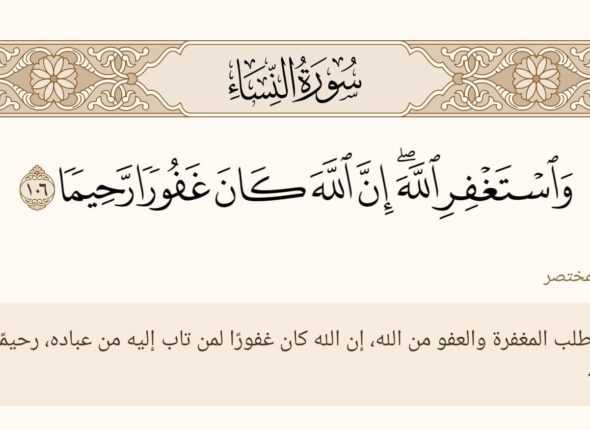 سُورَةُ النِّسَاءِ
وَٱسۡتَغۡفِرِ ٱللَّهَۖ إِنَّ ٱللَّهَ كَانَ غَفُورٗا رَّحِيمٗا ١٠٦
مختصر
طلب المغفرة والعفو من الله، إن الله كان غفورًا لمن تاب إليه من عباده، رحيمً